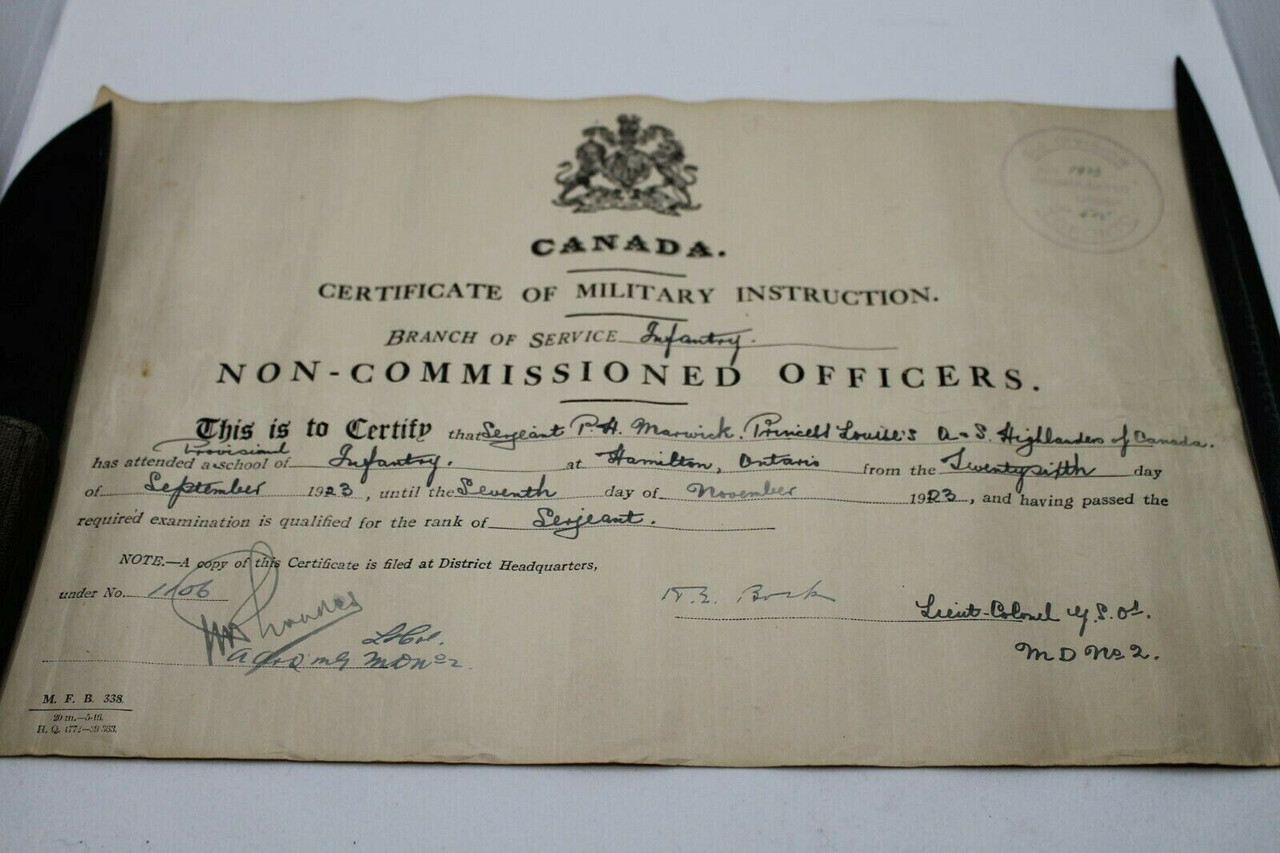 CANADA.
CERTIFICATE OF MILITARY INSTRUCTION.
BRANCH OF SERVICE Infantry.
NON-COMMISSIONED OFFICERS.
This is to Certify that Sergeant P. H. Marwick. Princess Louise's A & S. Highlanders of Canada.
Provisional
has attended a school of Infantry. at Hamilton, Ontario from the Twentysixth day
of September 1923, until the Seventh day of November 1923, and having passed the
required examination is qualified for the rank of Sergeant.
NOTE.—A copy of this Certificate is filed at District Headquarters,
under No. 1106
Lieut-Colonel
Lt Col.
M D No 2.
M D No 2.
M. F. B. 338.
20 m.—5-16.
H. Q. 1772—39